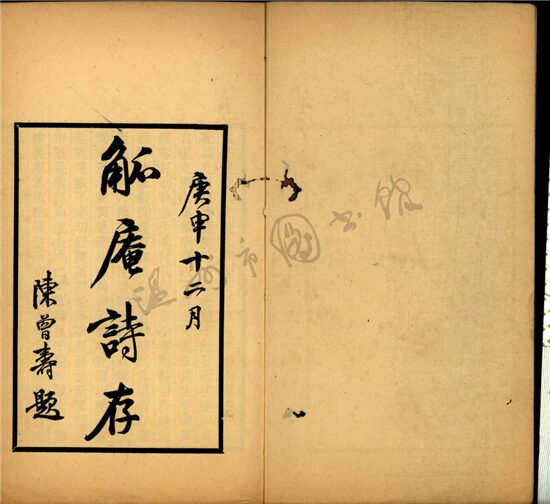 庚申十二月
觚庵詩存
陳曾壽題
温州市图书馆